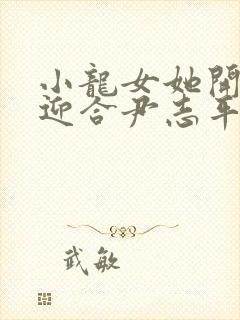 小龍女她開
迎合尹志平
武敏